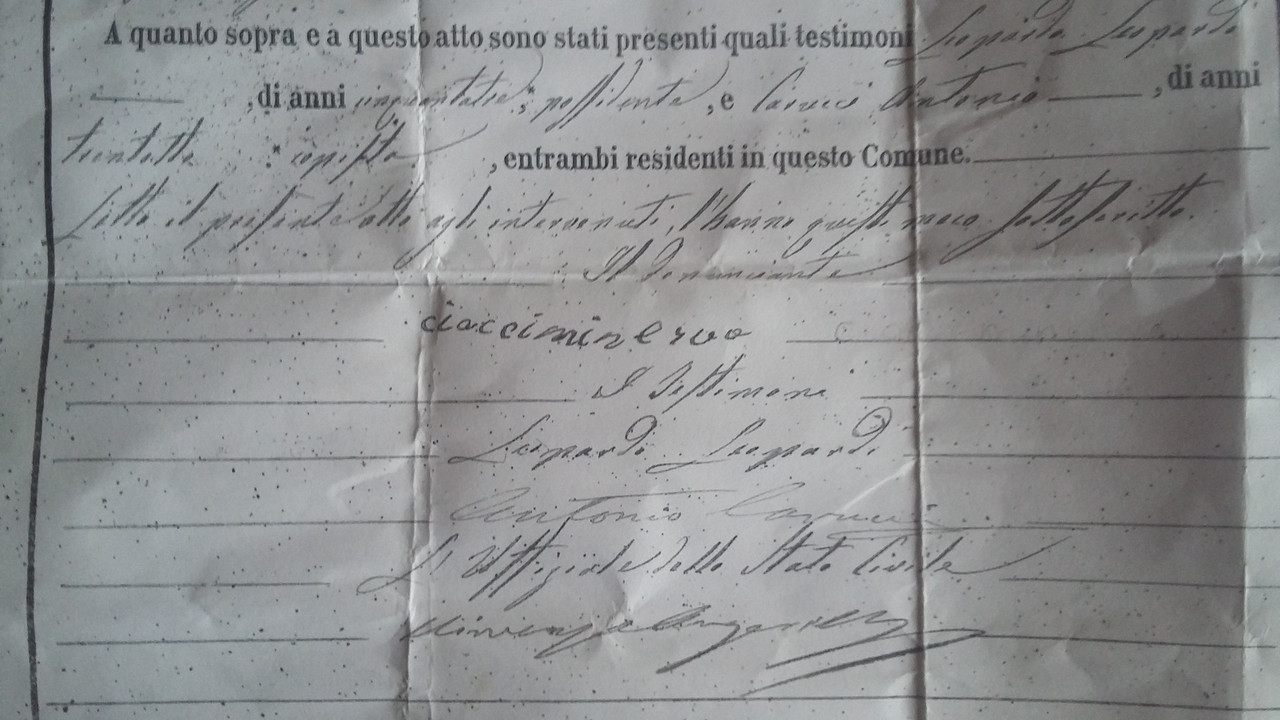 A quanto sopra e a questo atto sono stati presenti quali testimoni Leopardo Leopardi
, di anni cinquantatre, possidente, e Carucci Antonio, di anni
trentotto copista, entrambi residenti in questo Comune.
Letto il presente atto agli intervenuti, l'hanno questi meco sottoscritto.
Il Denunciante
ciacci minervo
I Testimoni
Leopardo Leopardi
Antonio Carucci
L'Uffiziale dello Stato Civile
Vincenzo